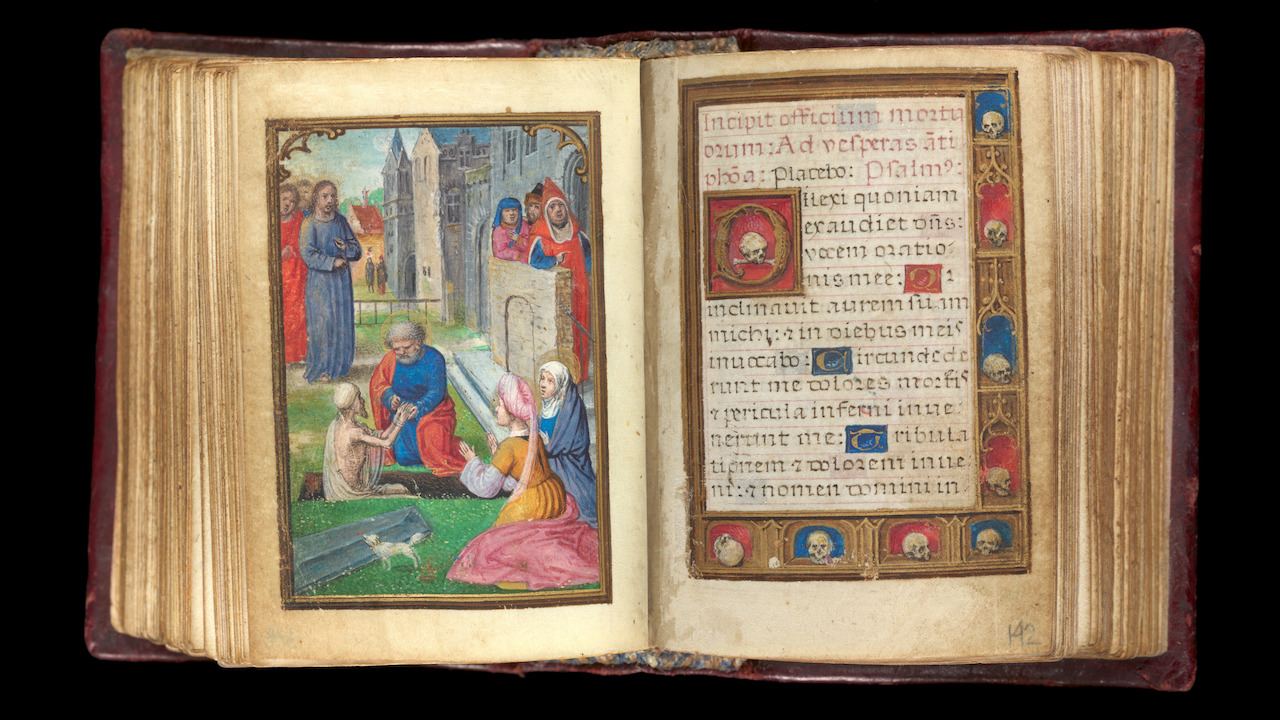 Incipit officium mortu
orum: Ad vesperas ãti
phõa: Placebo: Psalm9:
Dilexi quoniam
exaudiet dñs:
vocem oratio-
nis mee: Q ꝛ
inclinavit aurem suam
michi: ꝛ in diebus meis
invocabo: Circundede
runt me dolores mortis
ꝛ pericula inferni inve-
nerunt me: Tribula
tionem ꝛ dolorem inve-
ni: ꝛ nomen domini in-
142